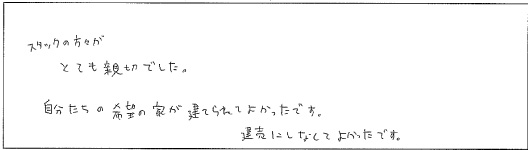 スタッフの方々が
とても親切でした。
自分たちの希望の家が建てられてよかったです。
建売にしなくてよかったです。